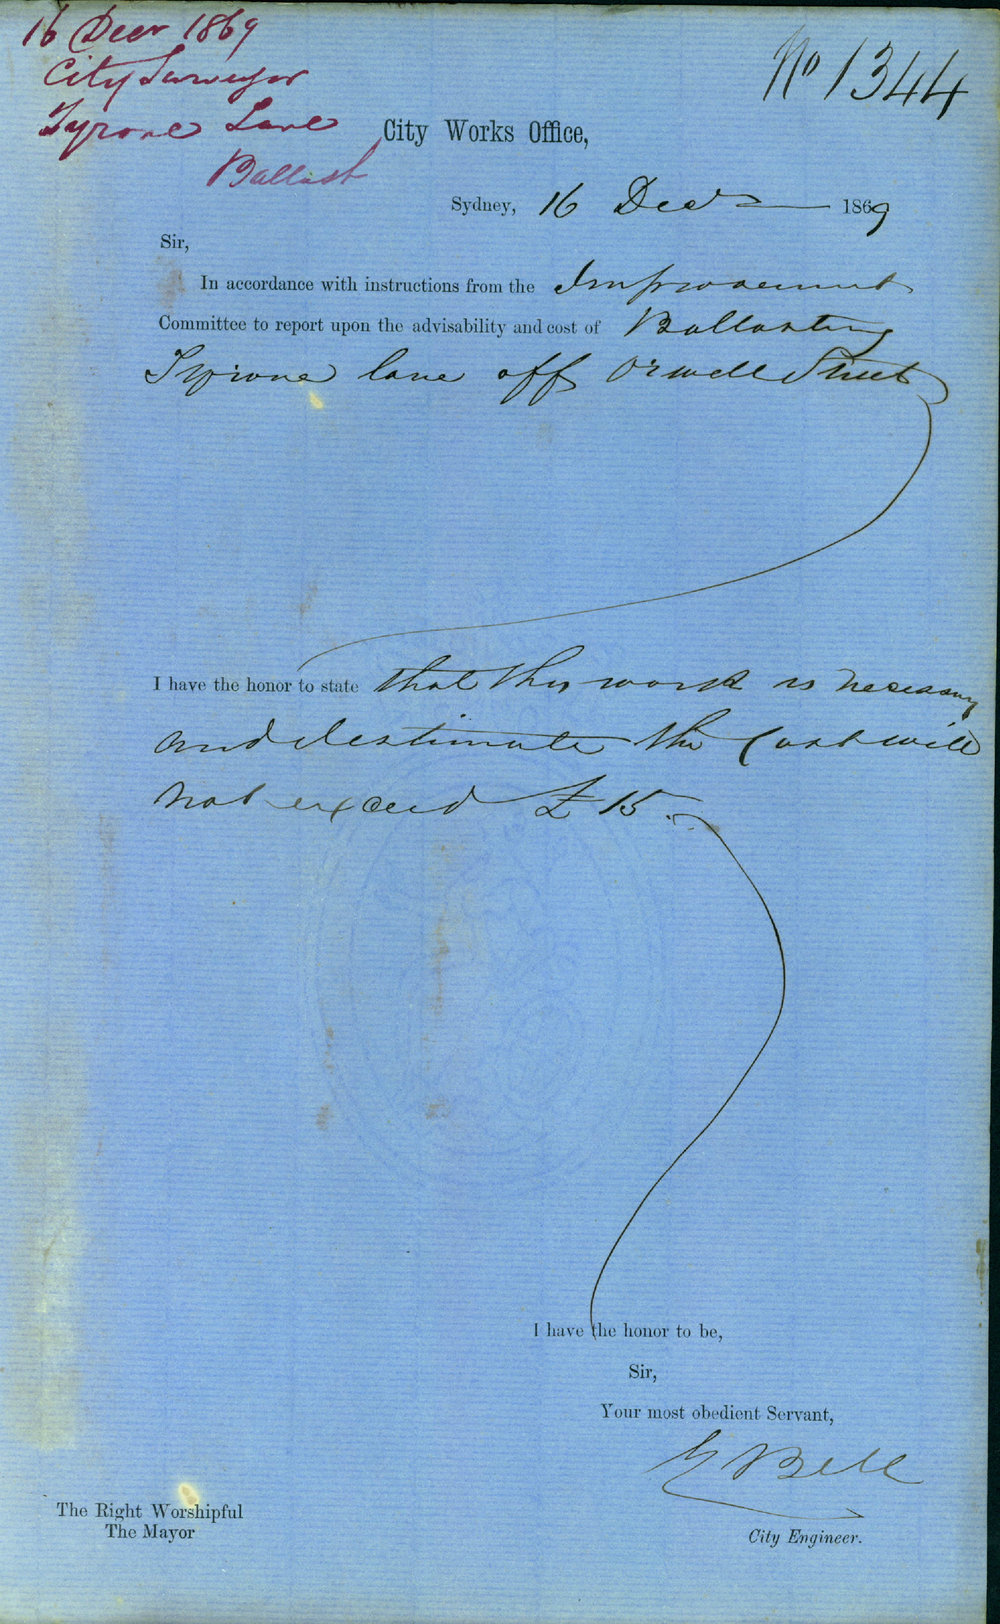 16 Decr 1869
City Surveyor
Tyrone Lane
Ballast
No 1344
City Works Office,
Sydney, 16 Decr 1869
Sir,
In accordance with instructions from the Improvement
Committee to report upon the advisability and cost of Ballasting
Tyrone lane off Orwell Street
I have the honor to state that this work is necessary
and I estimate the Cost will
not exceed £15.
I have the honor to be,
Sir,
Your most obedient Servant,
E Bell
City Engineer.
The Right Worshipful
The Mayor